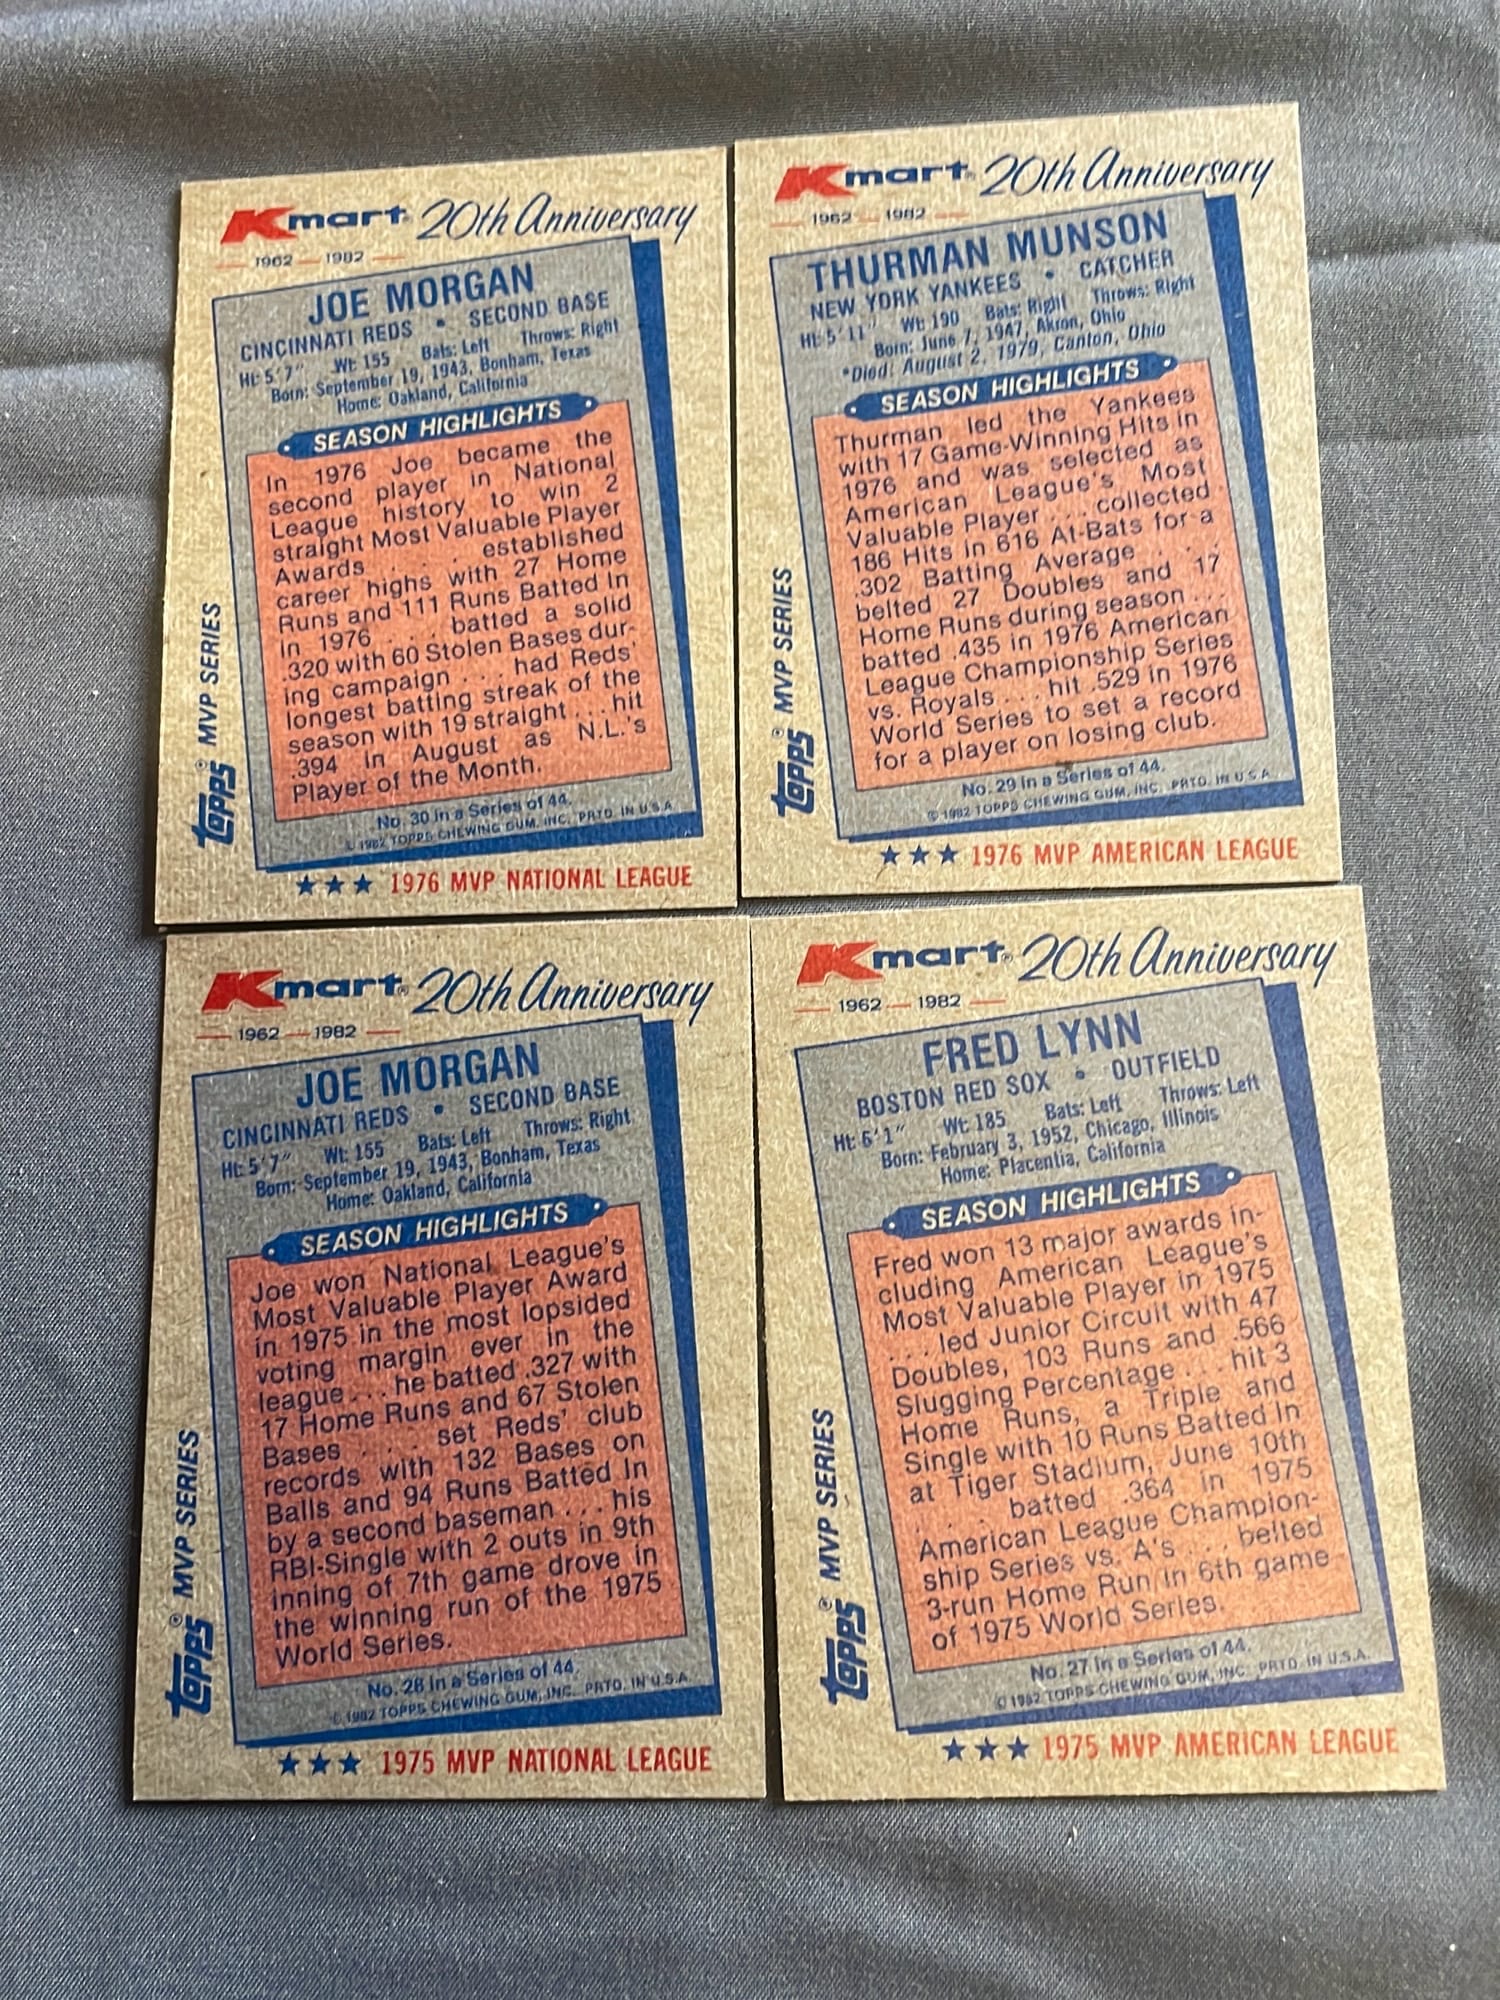 Kmart® 20th Anniversary
1962 — 1982
JOE MORGAN
CINCINNATI REDS • SECOND BASE
Ht: 5'7" Wt: 155 Bats: Left Throws: Right
Born: September 19, 1943, Bonham, Texas
Home: Oakland, California
SEASON HIGHLIGHTS
In 1976 Joe became the
second player in National
League history to win 2
straight Most Valuable Player
Awards . . . established
career highs with 27 Home
Runs and 111 Runs Batted In
in 1976 . . . batted a solid
.320 with 60 Stolen Bases dur-
ing campaign . . . had Reds'
longest batting streak of the
season with 19 straight . . . hit
.394 in August as N.L.'s
Player of the Month.
No. 30 in a Series of 44.
© 1982 TOPPS CHEWING GUM, INC. PRTD. IN U.S.A.
TOPPS® MVP SERIES
★★★ 1976 MVP NATIONAL LEAGUE
Kmart® 20th Anniversary
1962 — 1982
THURMAN MUNSON
NEW YORK YANKEES • CATCHER
Ht: 5'11" Wt: 190 Bats: Right Throws: Right
Born: June 7, 1947, Akron, Ohio
*Died: August 2, 1979, Canton, Ohio
SEASON HIGHLIGHTS
Thurman led the Yankees
with 17 Game-Winning Hits in
1976 and was selected as
American League's Most
Valuable Player . . . collected
186 Hits in 616 At-Bats for a
.302 Batting Average . . .
belted 27 Doubles and 17
Home Runs during season . . .
batted .435 in 1976 American
League Championship Series
vs. Royals . . . hit .529 in 1976
World Series to set a record
for a player on losing club.
No. 29 in a Series of 44.
© 1982 TOPPS CHEWING GUM, INC. PRTD. IN U.S.A.
TOPPS® MVP SERIES
★★★ 1976 MVP AMERICAN LEAGUE
Kmart® 20th Anniversary
1962 — 1982
JOE MORGAN
CINCINNATI REDS • SECOND BASE
Ht: 5'7" Wt: 155 Bats: Left Throws: Right
Born: September 19, 1943, Bonham, Texas
Home: Oakland, California
SEASON HIGHLIGHTS
Joe won National League's
Most Valuable Player Award
in 1975 in the most lopsided
voting margin ever in the
league . . . he batted .327 with
17 Home Runs and 67 Stolen
Bases . . . set Reds' club
records with 132 Bases on
Balls and 94 Runs Batted In
by a second baseman . . . his
RBI-Single with 2 outs in 9th
inning of 7th game drove in
the winning run of the 1975
World Series.
No. 28 in a Series of 44.
© 1982 TOPPS CHEWING GUM, INC. PRTD. IN U.S.A.
TOPPS® MVP SERIES
★★★ 1975 MVP NATIONAL LEAGUE
Kmart® 20th Anniversary
1962 — 1982
FRED LYNN
BOSTON RED SOX • OUTFIELD
Ht: 6'1" Wt: 185 Bats: Left Throws: Left
Born: February 3, 1952, Chicago, Illinois
Home: Placentia, California
SEASON HIGHLIGHTS
Fred won 13 major awards in-
cluding American League's
Most Valuable Player in 1975
. . . led Junior Circuit with 47
Doubles, 103 Runs and .566
Slugging Percentage . . . hit 3
Home Runs, a Triple and
Single with 10 Runs Batted In
at Tiger Stadium, June 10th
. . . batted .364 in 1975
American League Champion-
ship Series vs. A's . . . belted
3-run Home Run in 6th game
of 1975 World Series.
No. 27 in a Series of 44.
© 1982 TOPPS CHEWING GUM, INC. PRTD. IN U.S.A.
TOPPS® MVP SERIES
★★★ 1975 MVP AMERICAN LEAGUE